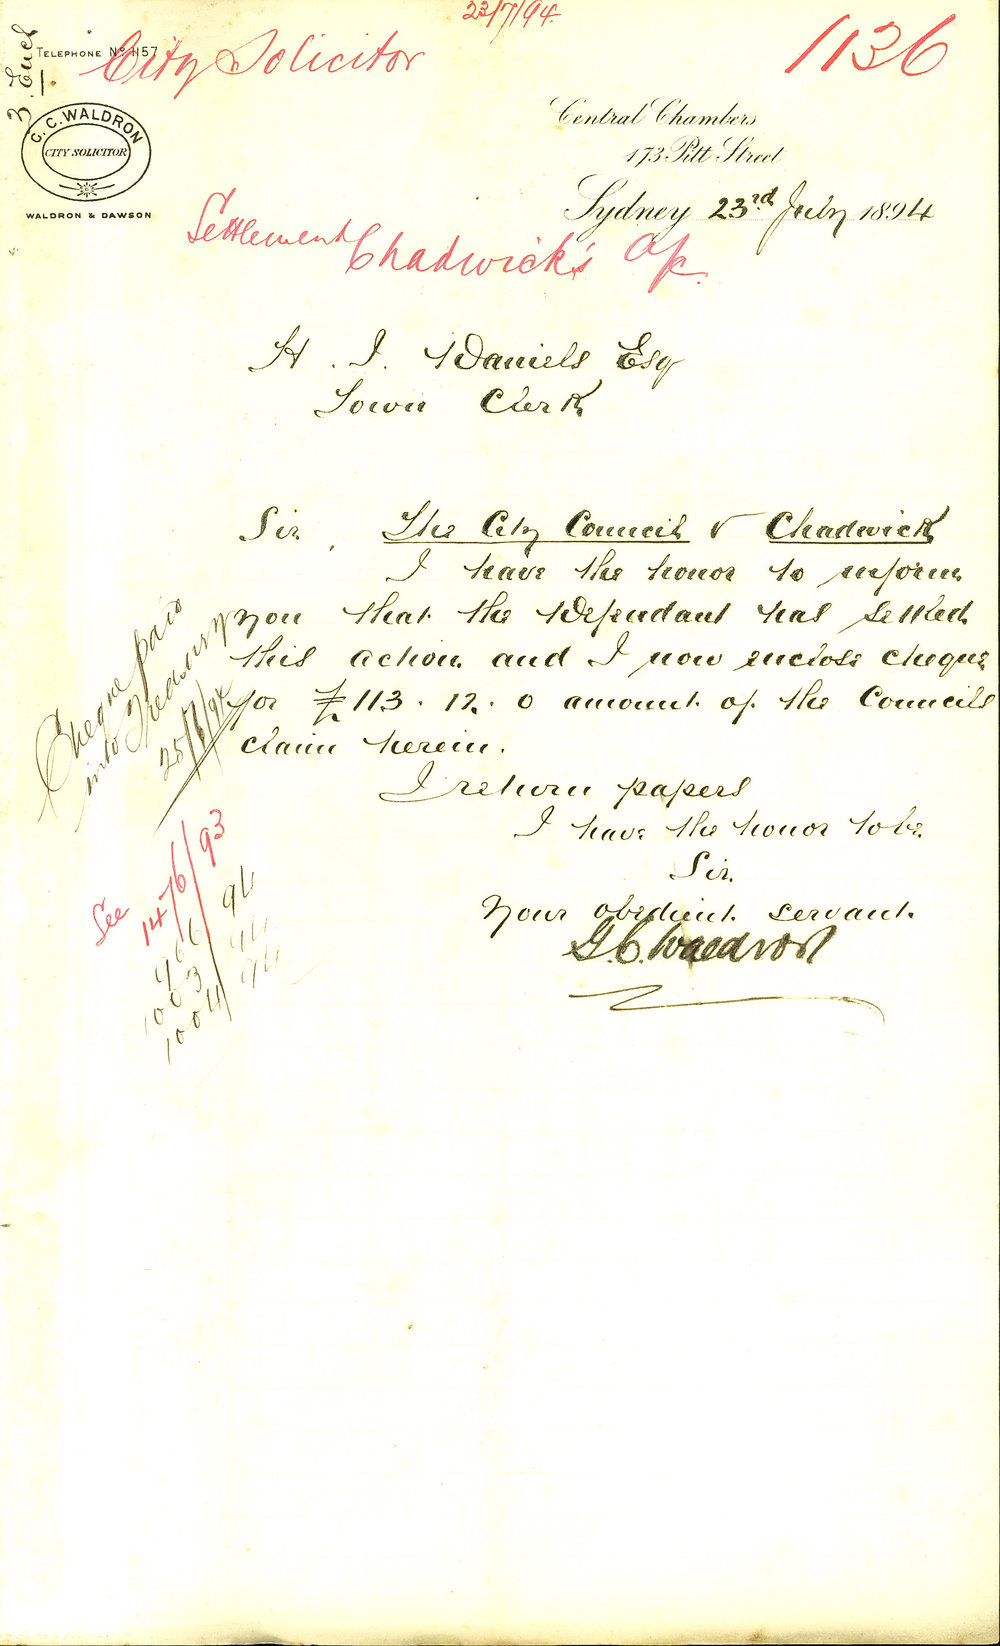 23/7/94
3. Encl
TELEPHONE No 1157
City Solicitor
1136
G. C. WALDRON
CITY SOLICITOR
WALDRON & DAWSON
Central Chambers
173 Pitt Street
Sydney 23rd July 1894
Settlement
Chadwick's a/c.
H. J. Daniels Esq
Town Clerk
Sir, The City Council v Chadwick
I have the honor to inform
you that the Defendant has settled
this action and I now enclose cheque
for £113.12.0 amount of the Councils
claim herein.
I return papers
I have the honor to be
Sir
Your obedient servant.
G.C. Waldron
Cheque paid
into Treasury
25/7/94
See 1476/93
966/94
1003/94
1004/94